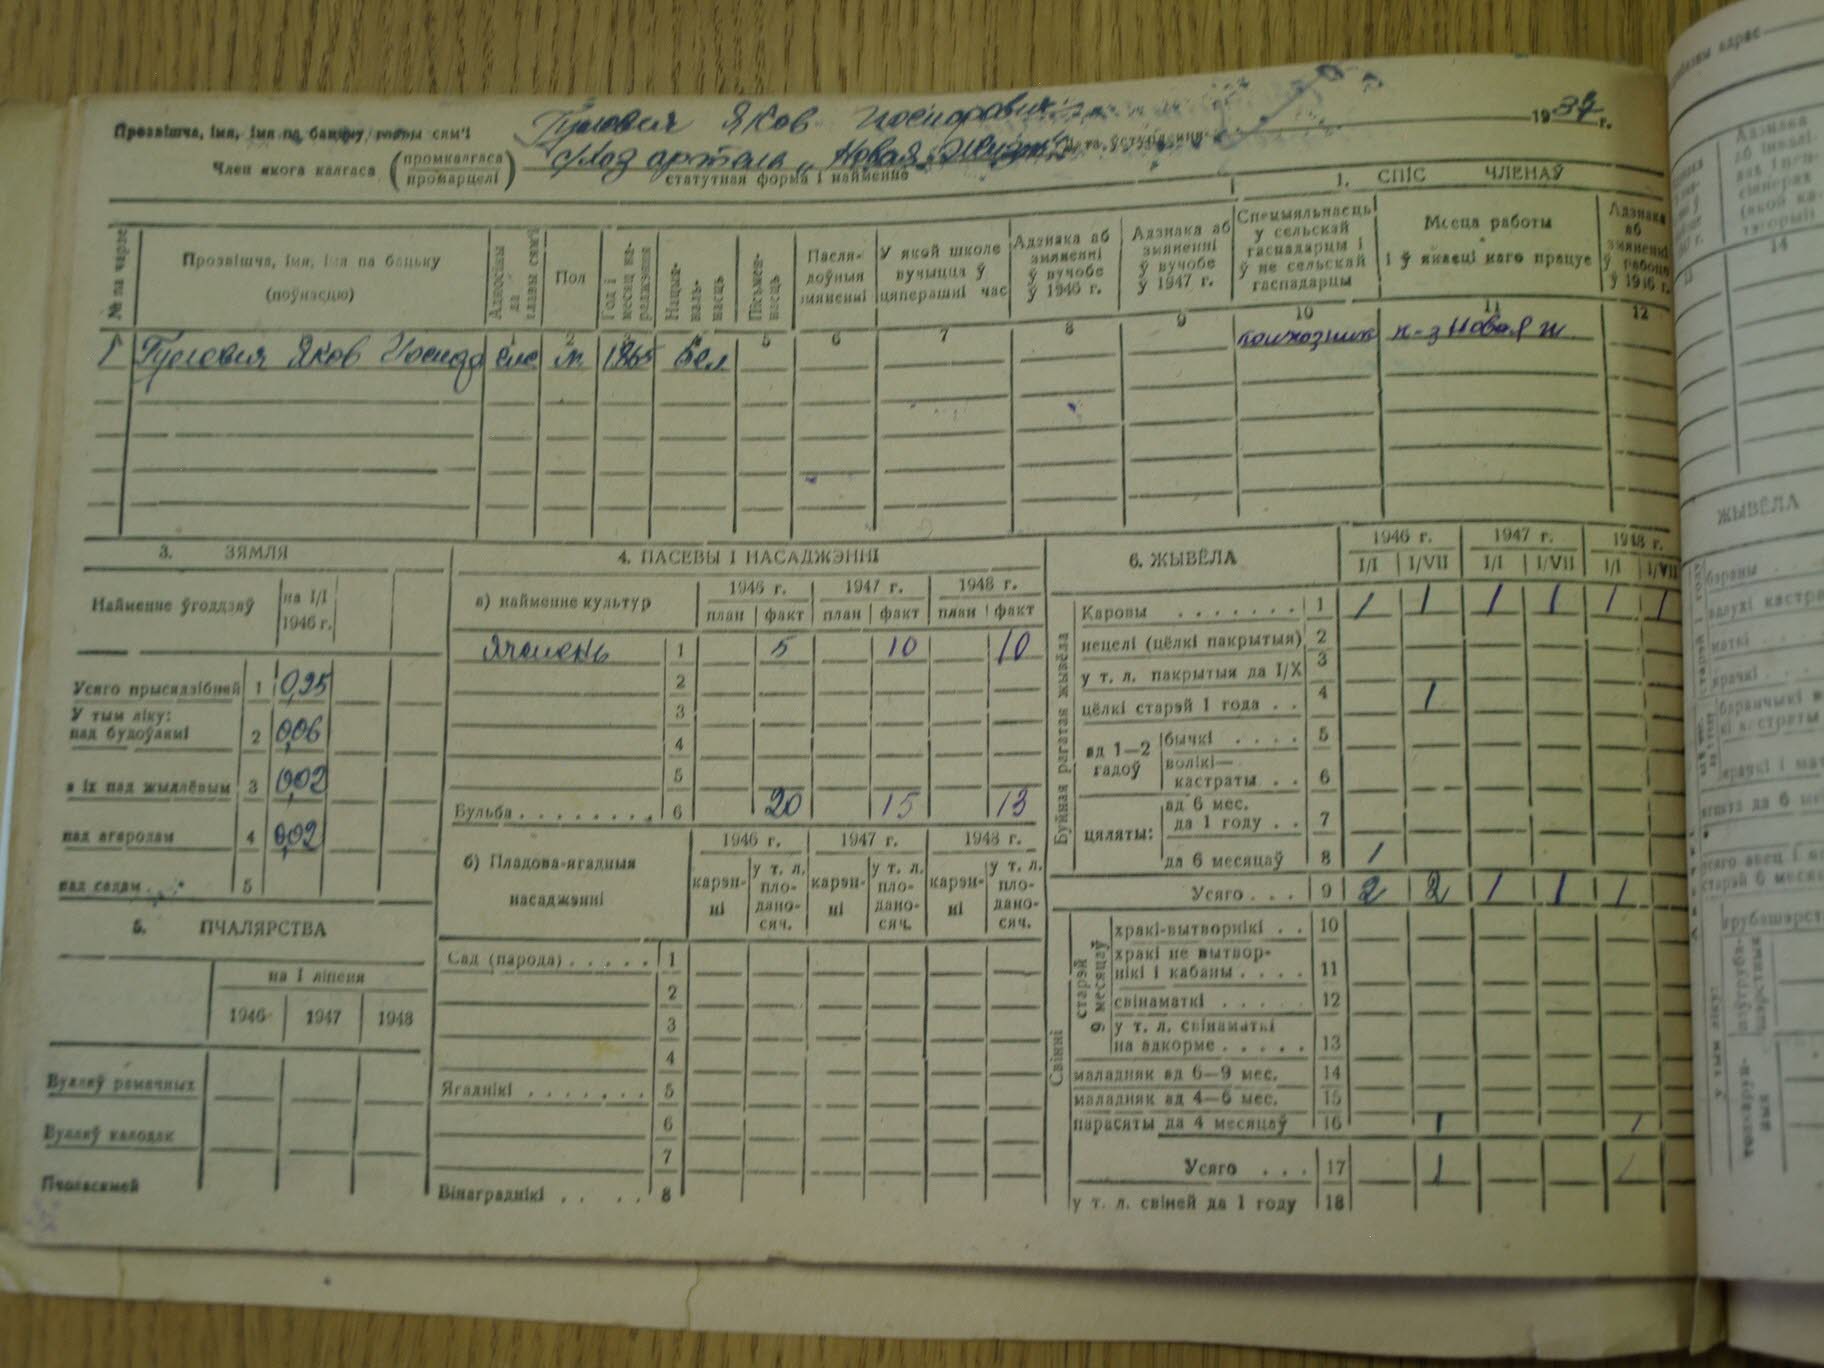 Прозвішча, імя, імя па бацьку главы сям'і Яков 1937 г.
Член якога калгаса (промкалгаса промарцелі) с/хоз артель „Новая Жизнь" Дата ўступлення
статутная форма і найменне
1. СПІС ЧЛЕНАЎ
№ па чарзе
Прозвішча, імя, імя па бацьку (поўнасцю)
Адносіны да главы сям'і
Пол
Год і месяц нараджэння
Нацыянальнасць
Пісьменнасць
Паслядоўныя змяненні
У якой школе вучыцца ў цяперашні час
Адзнака аб змяненні ў вучобе ў 1946 г.
Адзнака аб змяненні ў вучобе ў 1947 г.
Спецыяльнасць у сельскай гаспадарцы і ў не сельскай гаспадарцы
Месца работы і ў якасці каго працуе
Адзнака аб змяненні ў рабоце ў 1946 г.
1 2 3 4 5 6 7 8 9 10 11 12
1 Яков м. 1865 бел колхозник к-з Новая ж
3. ЗЯМЛЯ
Найменне ўгоддзяў на I/I 1946 г.
Усяго прысядзібнай 1 0,25
У тым ліку:
пад будоўлямі 2 0,06
з іх пад жыллёвымі 3 0,02
пад агародам 4 0,02
пад садам 5
5. ПЧАЛЯРСТВА
на 1 ліпеня
1946 1947 1948
Вуллёў рамачных
Вуллёў калодак
Пчоласямей
4. ПАСЕВЫ І НАСАДЖЭННІ
а) найменне культур
1946 г. 1947 г. 1948 г.
план факт план факт план факт
Ячмень 1 5 10 10
2
3
4
5
Бульба 6 20 15 13
б) Пладова-ягадныя насаджэнні
1946 г. 1947 г. 1948 г.
карэнні у т. л. пладаносяч. карэнні у т. л. пладаносяч. карэнні у т. л. пладаносяч.
Сад (парода) 1
2
3
4
Ягаднікі 5
6
7
Вінаграднікі 8
6. ЖЫВЁЛА
1946 г. 1947 г. 1948 г.
I/I I/VII I/I I/VII I/I I/VII
Буйная рагатая жывёла
Каровы 1 1 1 1 1 1 1
нецелі (цёлкі пакрытыя) 2
у т. л. пакрытыя да I/X 3
цёлкі старэй 1 года 4 1
ад 1—2 гадоў
бычкі 5
волікі—кастраты 6
цяляты:
ад 6 мес. да 1 году 7
да 6 месяцаў 8 1
Усяго 9 2 2 1 1 1
Свінні
старэй 9 месяцаў
хракі-вытворнікі 10
хракі не вытворнікі і кабаны 11
свінаматкі 12
у т. л. свінаматкі на адкорме 13
маладняк ад 6—9 мес. 14
маладняк ад 4—6 мес. 15
парасяты да 4 месяцаў 16 1 1
Усяго 17 1 1
у т. л. свіней да 1 году 18
адрас
14
ЖЫВЁЛА
бараны
маткі